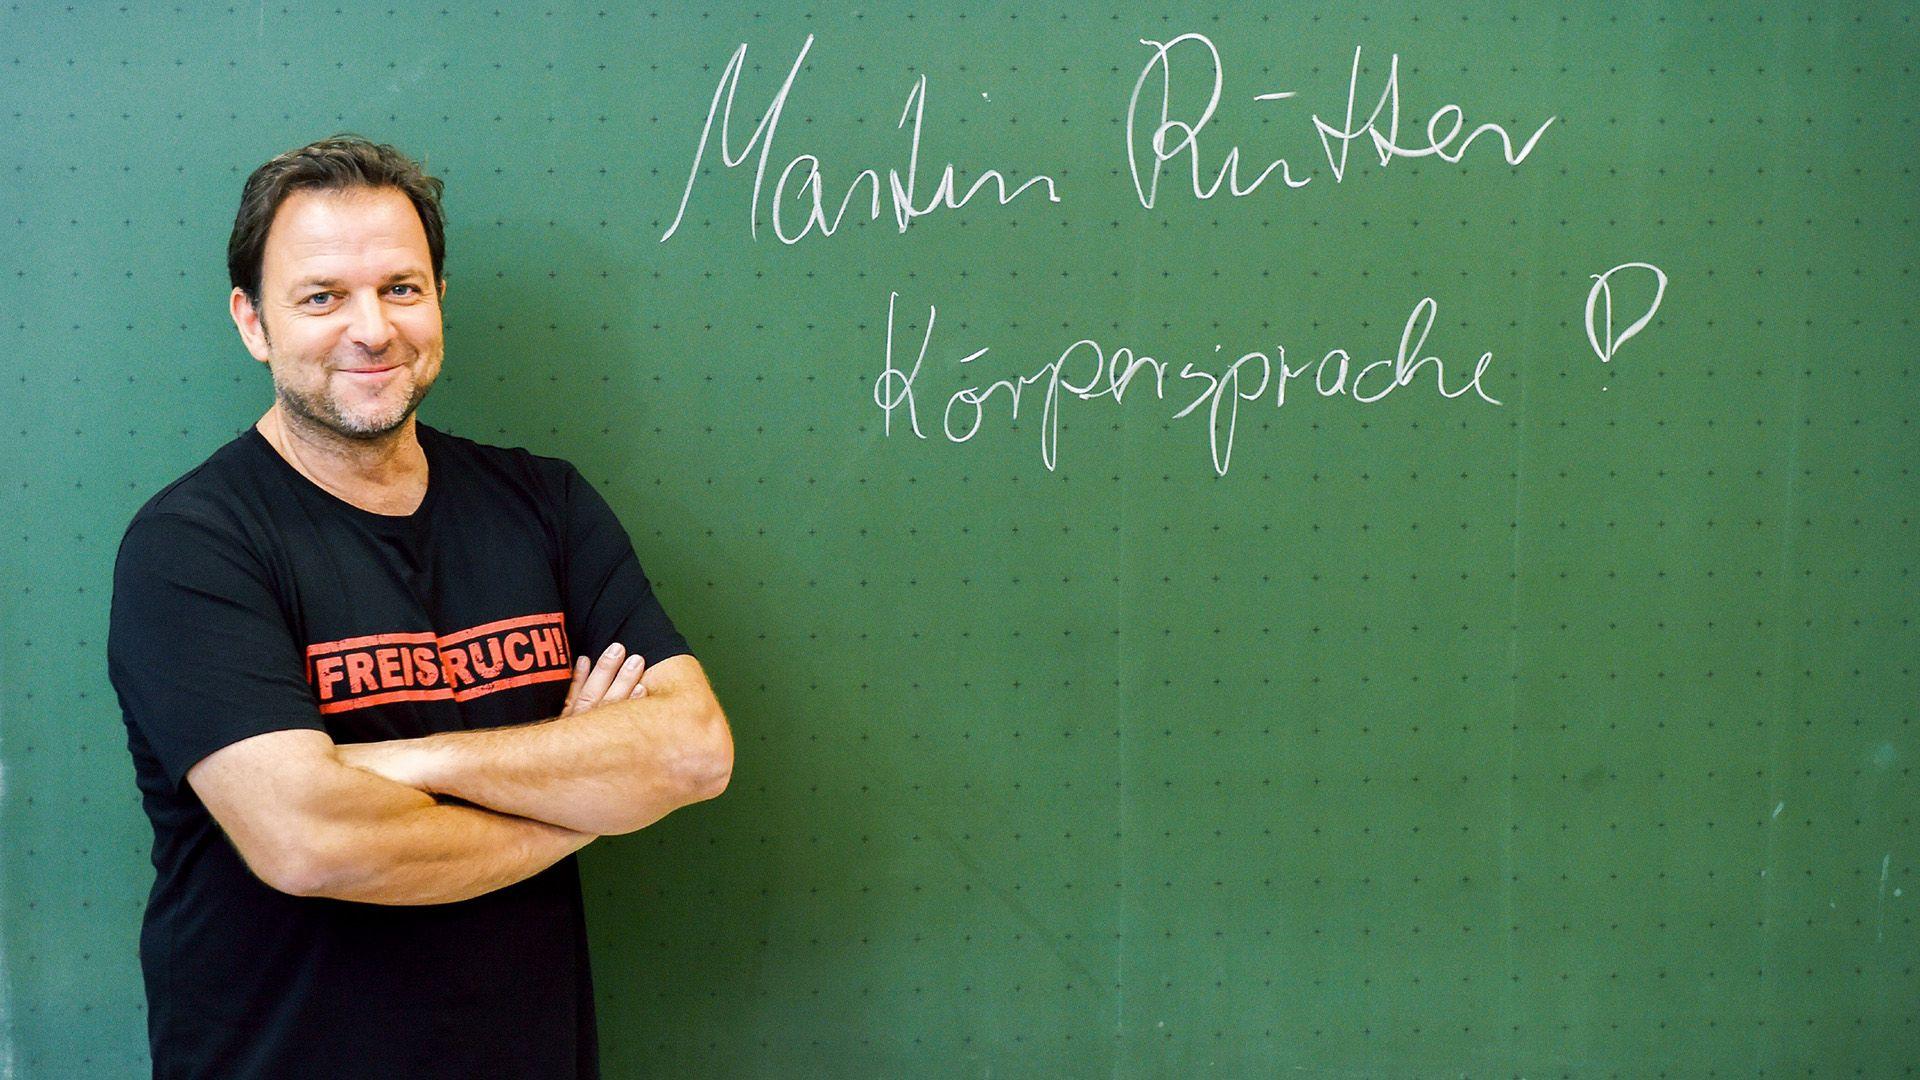 Martin Rütter
Körpersprache!
FREISPRUCH!